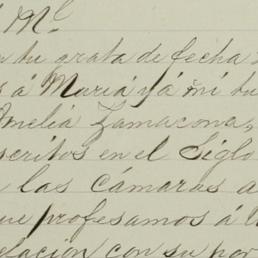 á M.l
tu grata de fecha
á María y á mi tu
Amelia Zamacona,
scritos en el Siglo
las cámaras a
ue profesamos á
elación con su por